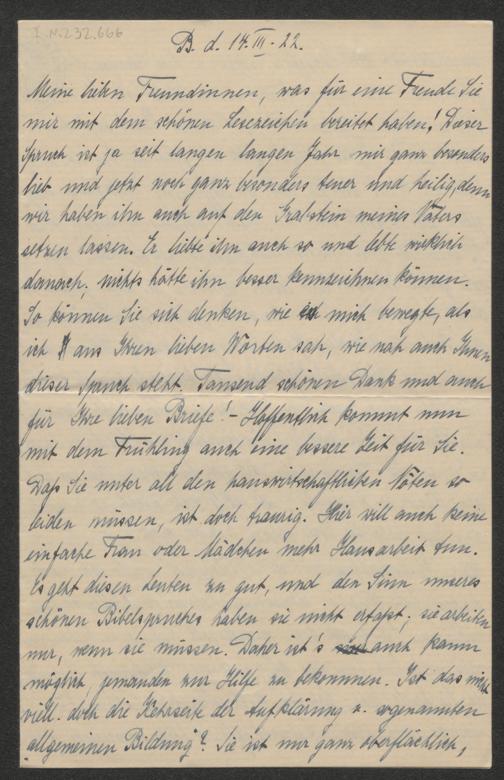 I.N.232.666
B. d. 14. III - 22.
Meine lieben Freundinnen, was für eine Freude Sie
mir mit dem schönen Lesezeichen bereitet haben! Dieser
Spruch ist ja seit langen langen Jahr mir ganz besonders
lieb und jetzt noch ganz besonders teuer und heilig, denn
wir haben ihn auch auf den Grabstein meines Vaters
setzen lassen. Er liebte ihn auch so und lebte wirklich
danach; nichts hätte ihn besser kennzeichnen können.
So können Sie sich denken, wie mich bewegte, als
ich aus Ihren lieben Worten sah, wie nah auch Ihnen
dieser Spruch steht. Tausend schönen Dank und auch
für Ihre lieben Briefe! - Hoffentlich kommt nun
mit dem Frühling auch eine bessere Zeit für Sie.
Daß Sie unter all den hauswirtschaftlichen Nöten so
leiden müssen, ist doch traurig. Hier will auch keine
einfache Frau oder Mädchen mehr Hausarbeit tun.
Es geht disen Leuten zu gut, und den Sinn unseres
schönen Bibelspruches haben sie nicht erfaßt; sie arbeiten
nur, wenn sie müssen. Daher ist's auch kaum
möglich, jemanden zur Hilfe zu bekommen. Ist das nicht
viell. doch die Kehrseite der Aufklärung u. sogenannten
„allgemeinen Bildung"? Sie ist nur ganz oberflächlich,